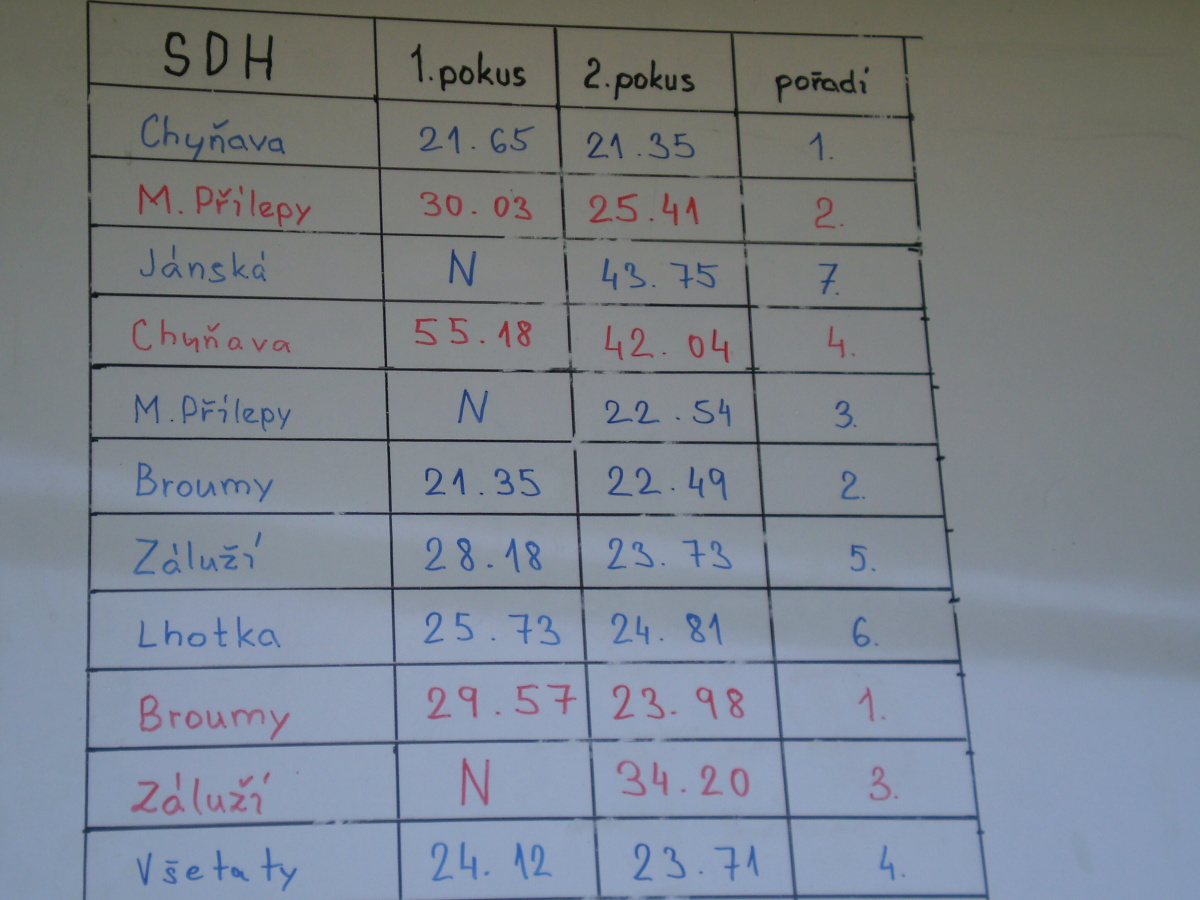 SDH 1.pokus 2.pokus pořadí
Chyňava 21.65 21.35 1.
M.Přílepy 30.03 25.41 2.
Jánská N 43.75 7.
Chyňava 55.18 42.04 4.
M.Přílepy N 22.54 3.
Broumy 21.35 22.49 2.
Záluží 28.18 23.73 5.
Lhotka 25.73 24.81 6.
Broumy 29.57 23.98 1.
Záluží N 34.20 3.
Všetaty 24.12 23.71 4.